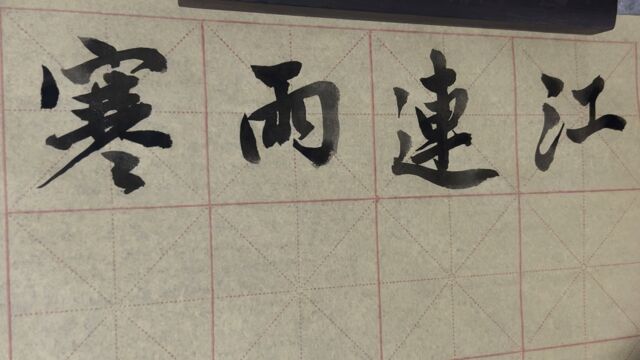 寒雨連江